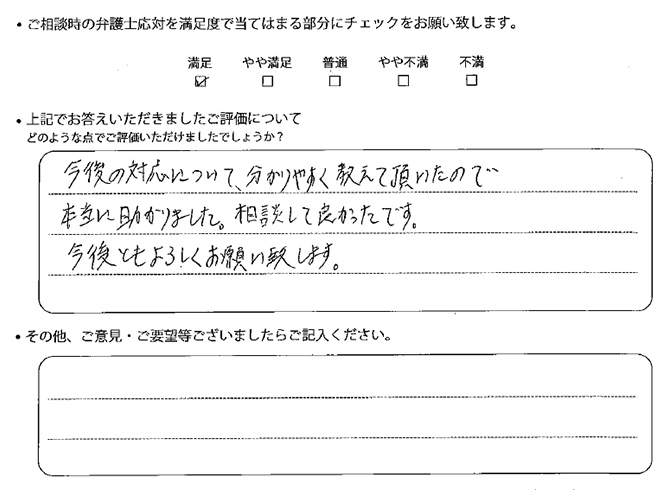 ・ご相談時の弁護士応対を満足度で当てはまる部分にチェックをお願い致します。
満足 やや満足 普通 やや不満 不満
☑ □ □ □ □
・上記でお答えいただきましたご評価について
どのような点でご評価いただけましたでしょうか？
今後の対応について、分かりやすく教えて頂いたので
本当に助かりました。相談して良かったです。
今後ともよろしくお願い致します。
・その他、ご意見・ご要望等ございましたらご記入ください。